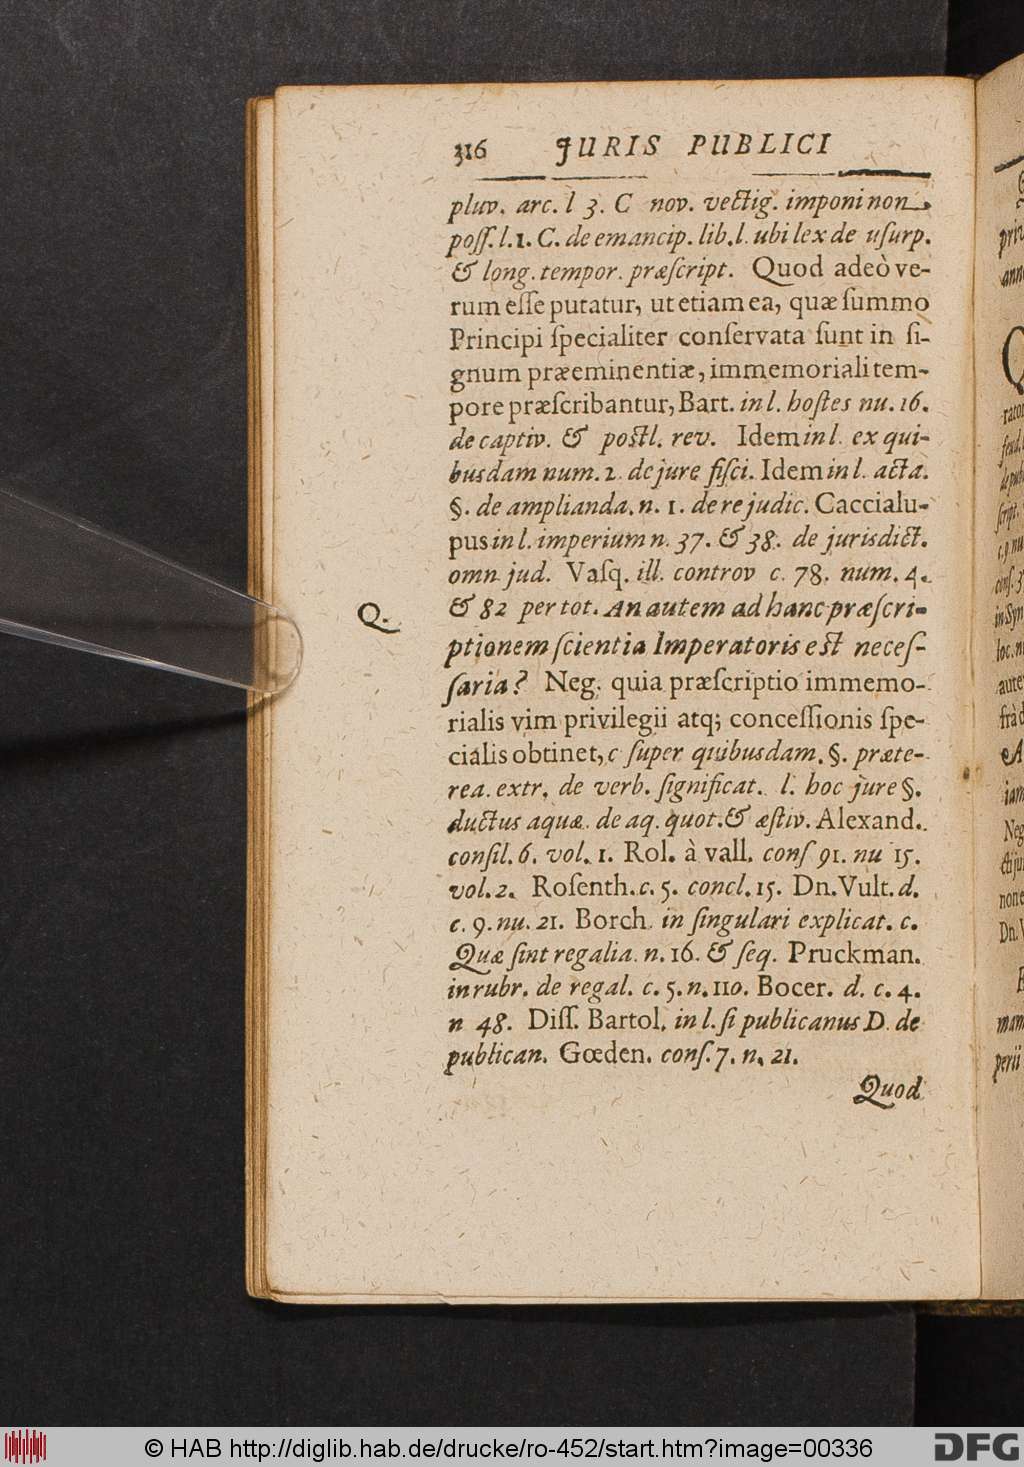 316 JURIS PUBLICI
pluv. arc. l 3. C nov. vectig. imponi non
poſſ. l. 1. C. de emancip. lib. l. ubi lex de uſurp.
& long. tempor. præſcript. Quod adeò ve-
rum eſſe putatur, ut etiam ea, quæ ſummo
Principi ſpecialiter conſervata ſunt in ſi-
gnum præeminentiæ, immemoriali tem-
pore præſcribantur, Bart. in l. hoſtes nu. 16.
de captiv. & postl. rev. Idem in l. ex qui-
busdam num. 2. de jure fiſci. Idem in l. acta.
§. de amplianda. n. 1. de re judic. Caccialu-
pus in l. imperium n. 37. & 38. de jurisdict.
omn jud. Vaſq. ill. controv c. 78. num. 4.
Q. & 82 per tot. An autem ad hanc præſcri-
ptionem ſcientia Imperatoris est neceſ-
ſaria? Neg. quia præſcriptio immemo-
rialis vim privilegii atq; conceſſionis ſpe-
cialis obtinet, c ſuper quibusdam. §. præte-
rea. extr. de verb. ſignificat. l. hoc jure §.
ductus aquæ. de aq. quot. & æſtiv. Alexand.
conſil. 6. vol. 1. Rol. à vall. conſ 91. nu 15.
vol. 2. Roſenth. c. 5. concl. 15. Dn. Vult. d.
c. 9. nu. 21. Borch. in ſingulari explicat. c.
Quæ ſint regalia. n. 16. & ſeq. Pruckman.
in rubr. de regal. c. 5. n. 110. Bocer. d. c. 4.
n 48. Diſſ. Bartol. in l. ſi publicanus D. de
publican. Gœden. conſ. 7. n. 21.
Quod
© HAB http://diglib.hab.de/drucke/ro-452/start.htm?image=00336
DFG